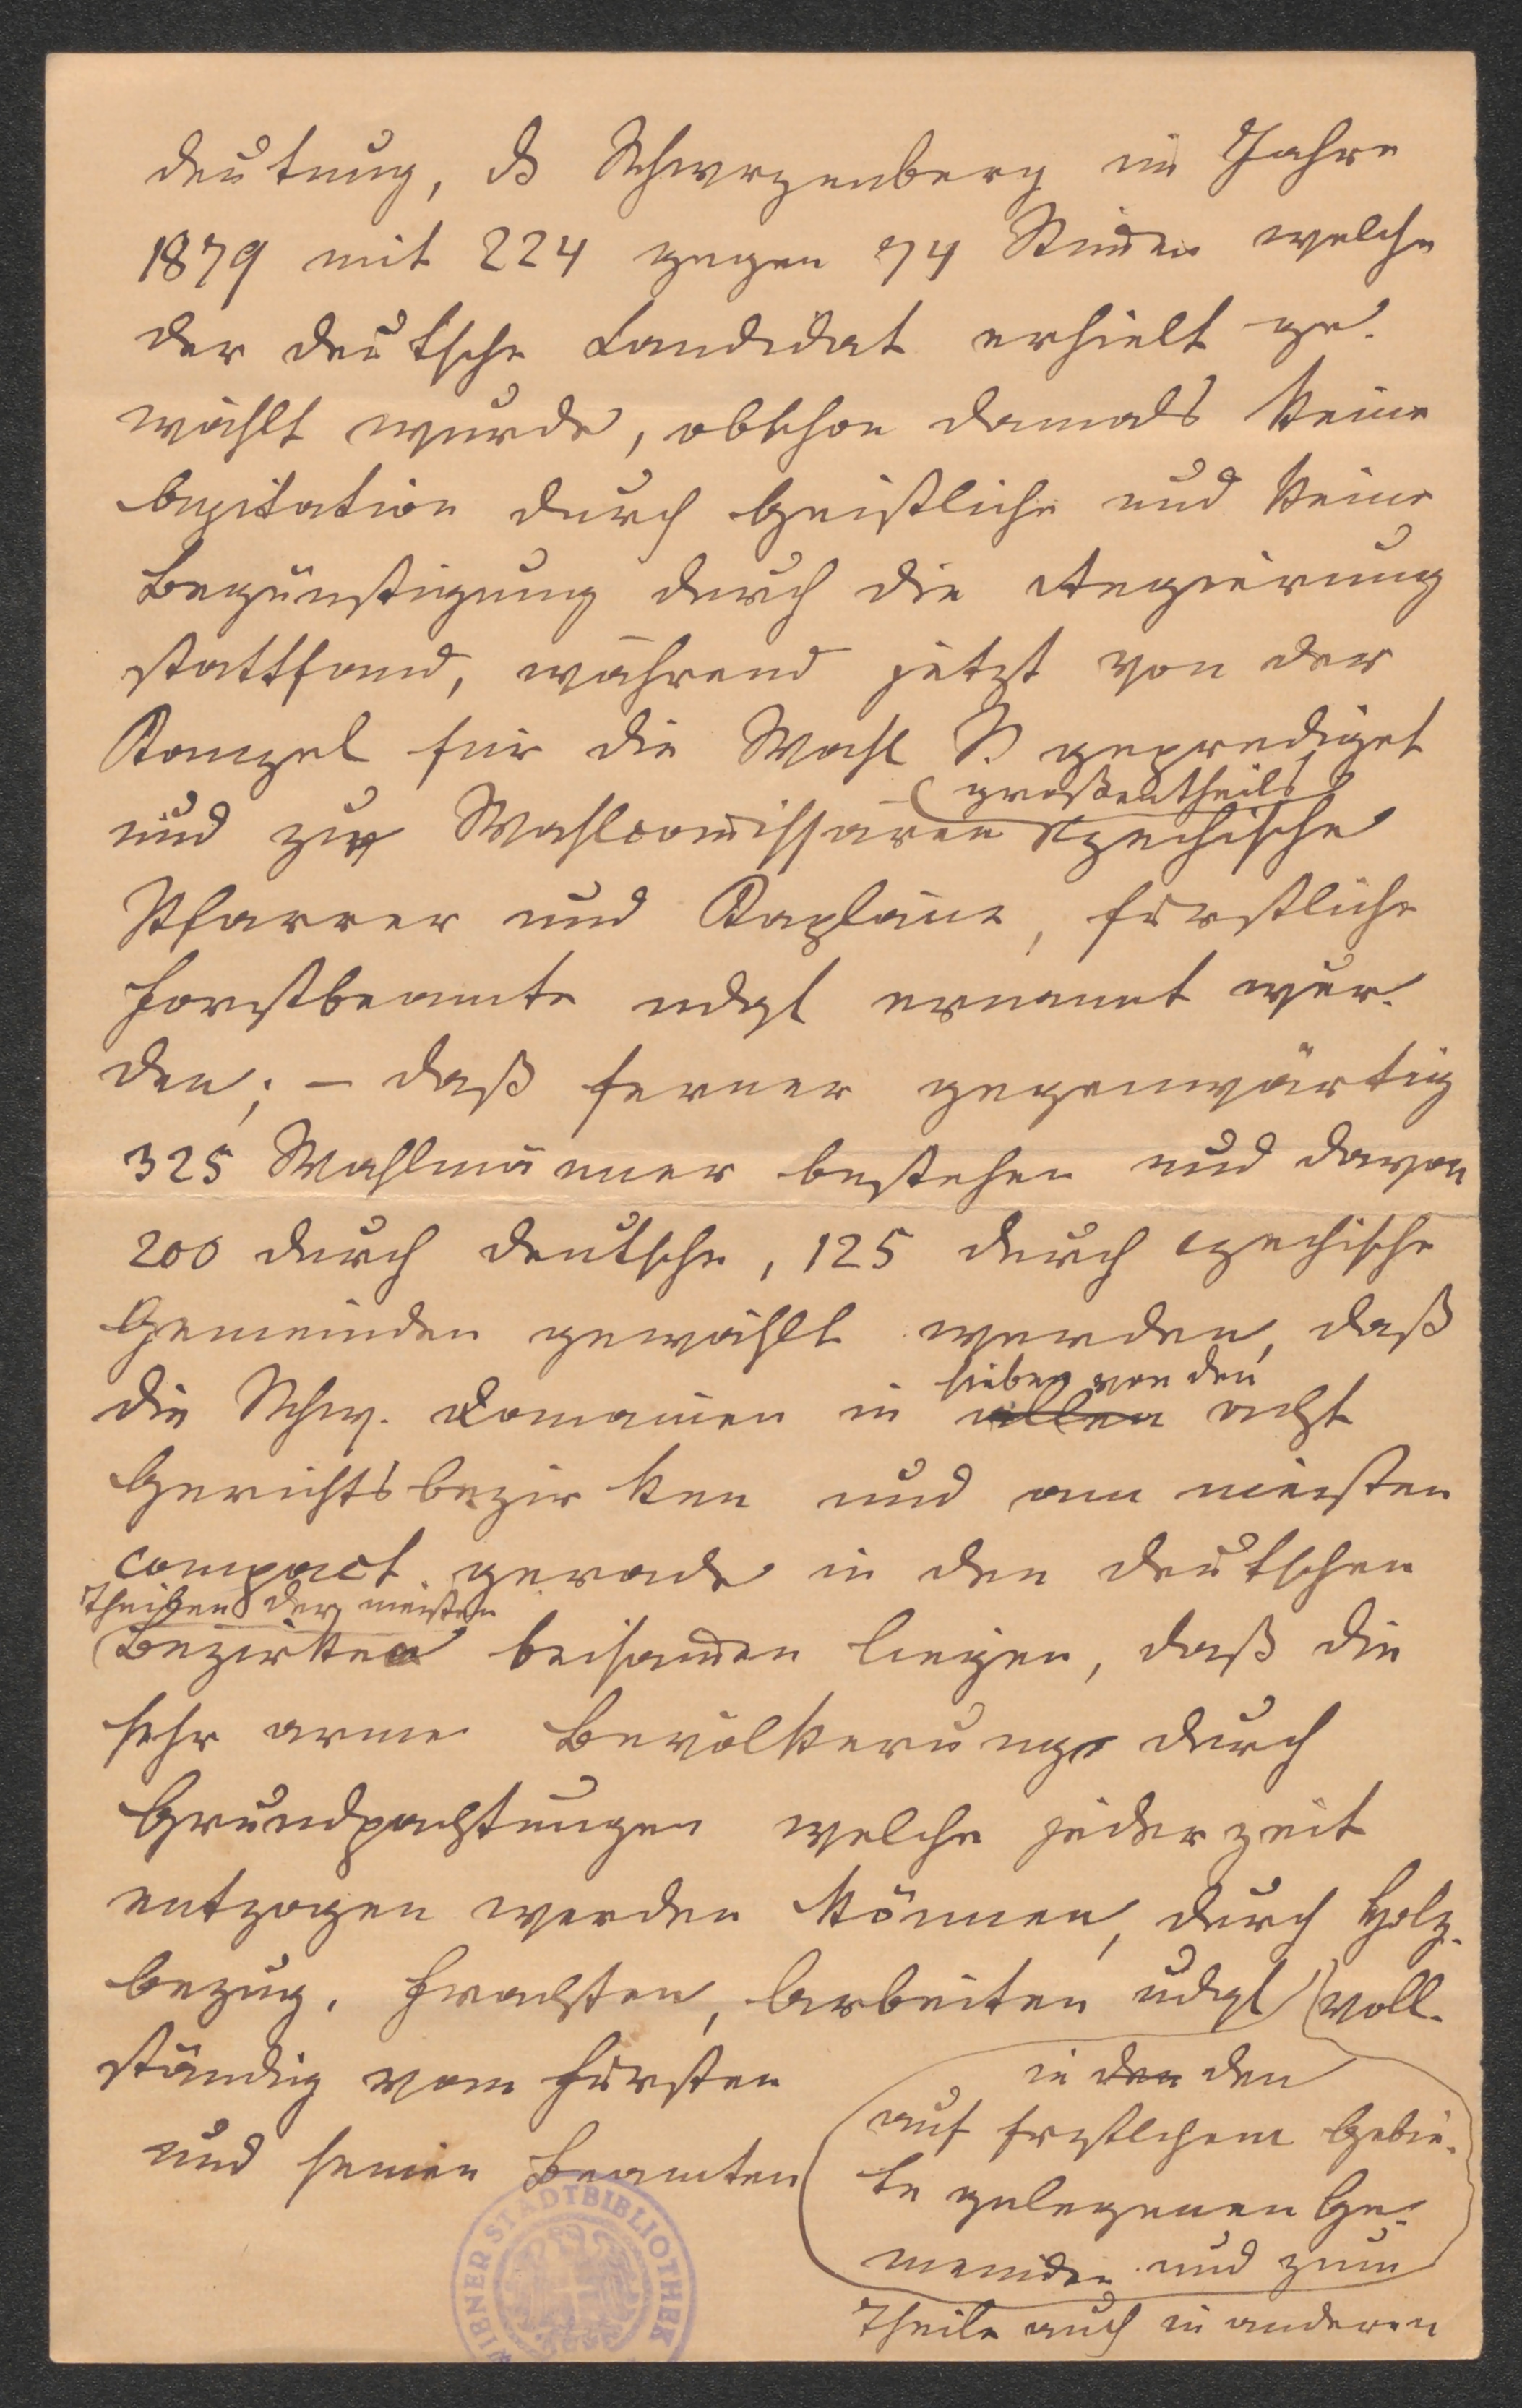 deutung, dß Schwrzenberg im Jahre
1879 mit 224 gegen 74 Stim̄en welche
der deutsche Candidat erhielt ge-
wählt wurde, obschon damals keine
Agitation durch Geistliche und keine
Begünstigung durch die Regierung
stattfand, während jetzt von der
Kanzel für die Wahl S. geprediget
großentheils
und zu Wahlcom̄issären czechische
Pfarrer und Kapläne, fürstliche
Forstbeamte udgl ernannt wur-
den; – daß ferner gegenwärtig
325 Wahlmänner bestehen und davon
200 durch deutsche, 125 durch czechische
Gemeinden gewählt werden, daß
sieben von den
die Schw. Domainen in allen acht
Gerichtsbezirken und am meisten
compact gerade in den deutschen
Theilen der meisten
Bezirke beisam̄en liegen, daß die
sehr arme Bevölkerung durch
Grundpachtungen welche jederzeit
entzogen werden können, durch Holz-
bezug, Frachten, Arbeiten udgl voll-
ständig vom Fürsten
und seinen Beamten
in den den
auf frstlchem Gebie-
te gelegenen Ge-
meinden und zum
Theile auch in anderen
WIENER STADTBIBLIOTHEK